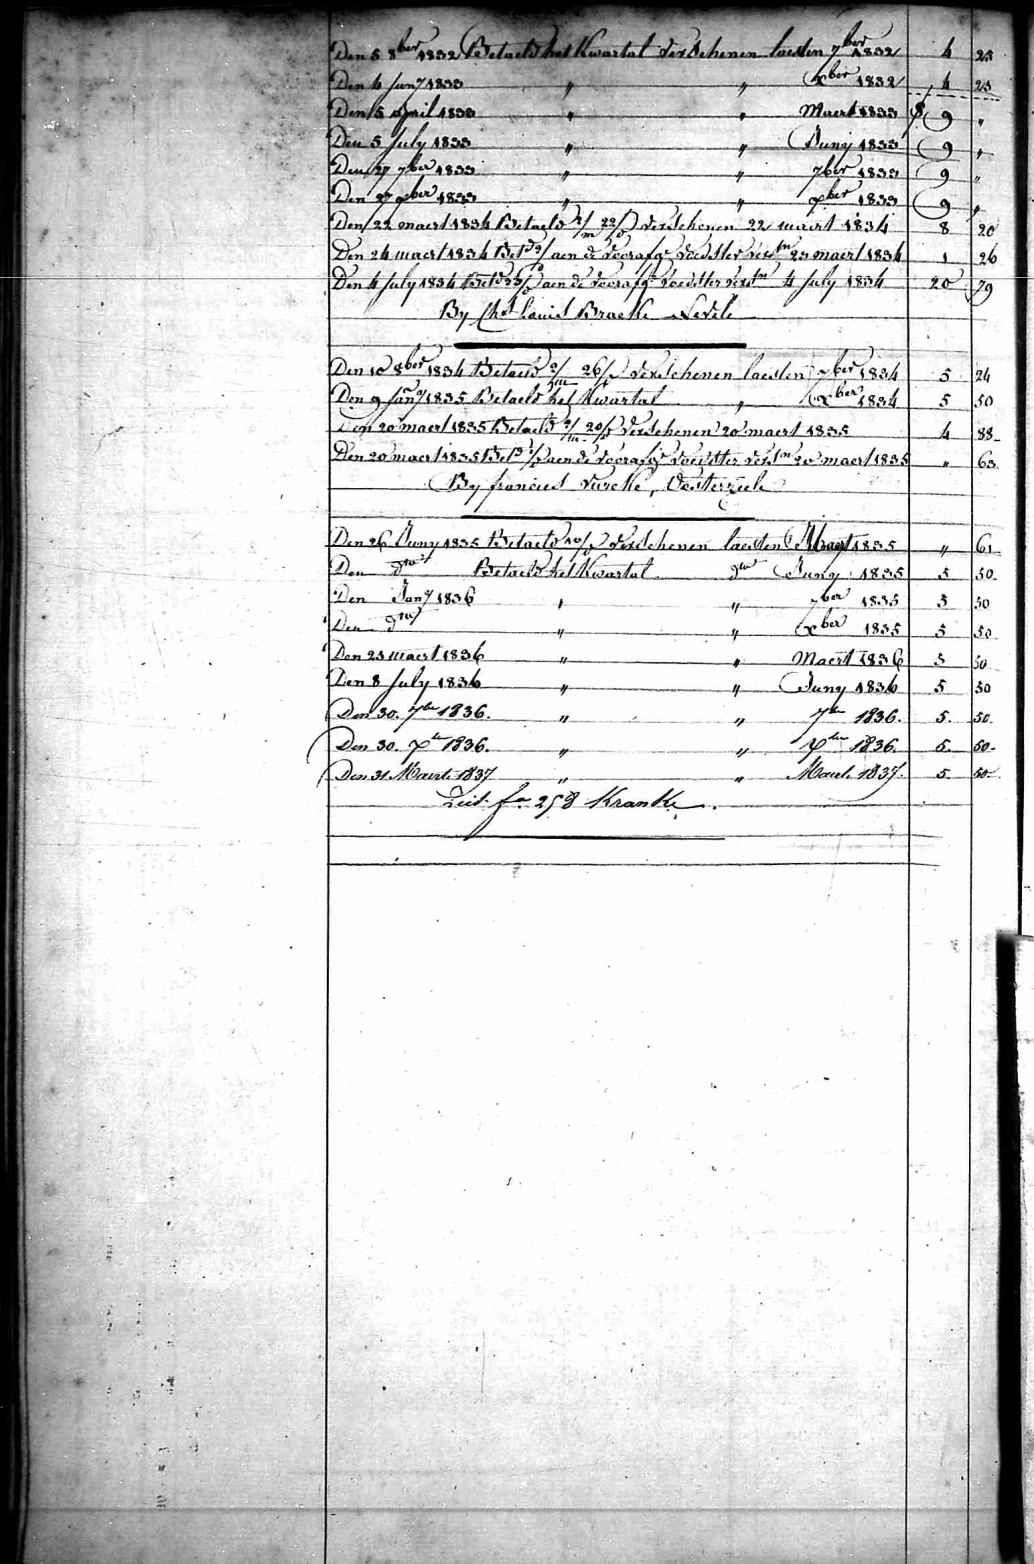 Den 5 8ber 1832 Betaeld het Kwartal verschenen laesten 7ber 1832 4 25
Den 4 Jany 1833 " " xber 1832 4 25
Den 5 april 1833 " " Maert 1833 9 "
Den 5 July 1833 " " Juny 1833 9 "
Den 27 7ber 1833 " " 7ber 1833 9 "
Den 27 xber 1833 " " xber 1833 9 "
Den 22 maert 1834 Betaeld 2/m 22/d verschenen 22 maert 1834 8 20
Den 24 maert 1834 aen de voorafge voedster 24 maert 1834 1 26
Den 4 July 1834 aen de voorafge voedster 4 July 1834 20 79
By Louis Bracke
Den 10 8ber 1834 Betaeld 2/m 26/d verschenen laesten 7ber 1834 5 24
Den 9 Jany 1835 Betaeld het Kwartal " xber 1834 5 50
Den 20 maert 1835 Betaeld 2/m 20/d verschenen 20 maert 1835 4 88
Den 20 maert 1835 aen de voorafge voedster 20 maert 1835 " 63
By francies Oosterzeele
Den 26 Juny 1835 Betaeld 10/d verschenen laesten Maert 1835 " 61
Den do Betaeld het Kwartal do Juny 1835 5 50
Den Jany 1836 " " 7ber 1835 5 50
Den do " " xber 1835 5 50
Den 25 maert 1836 " " Maert 1836 5 50
Den 8 July 1836 " " Juny 1836 5 50
Den 30. 7ber 1836. " " 7ber 1836. 5. 50.
Den 30. xber 1836. " " xber 1836. 5. 50.
Den 31. Maert. 1837 " " Maert. 1837. 5. 50
fo 258 Kranke.